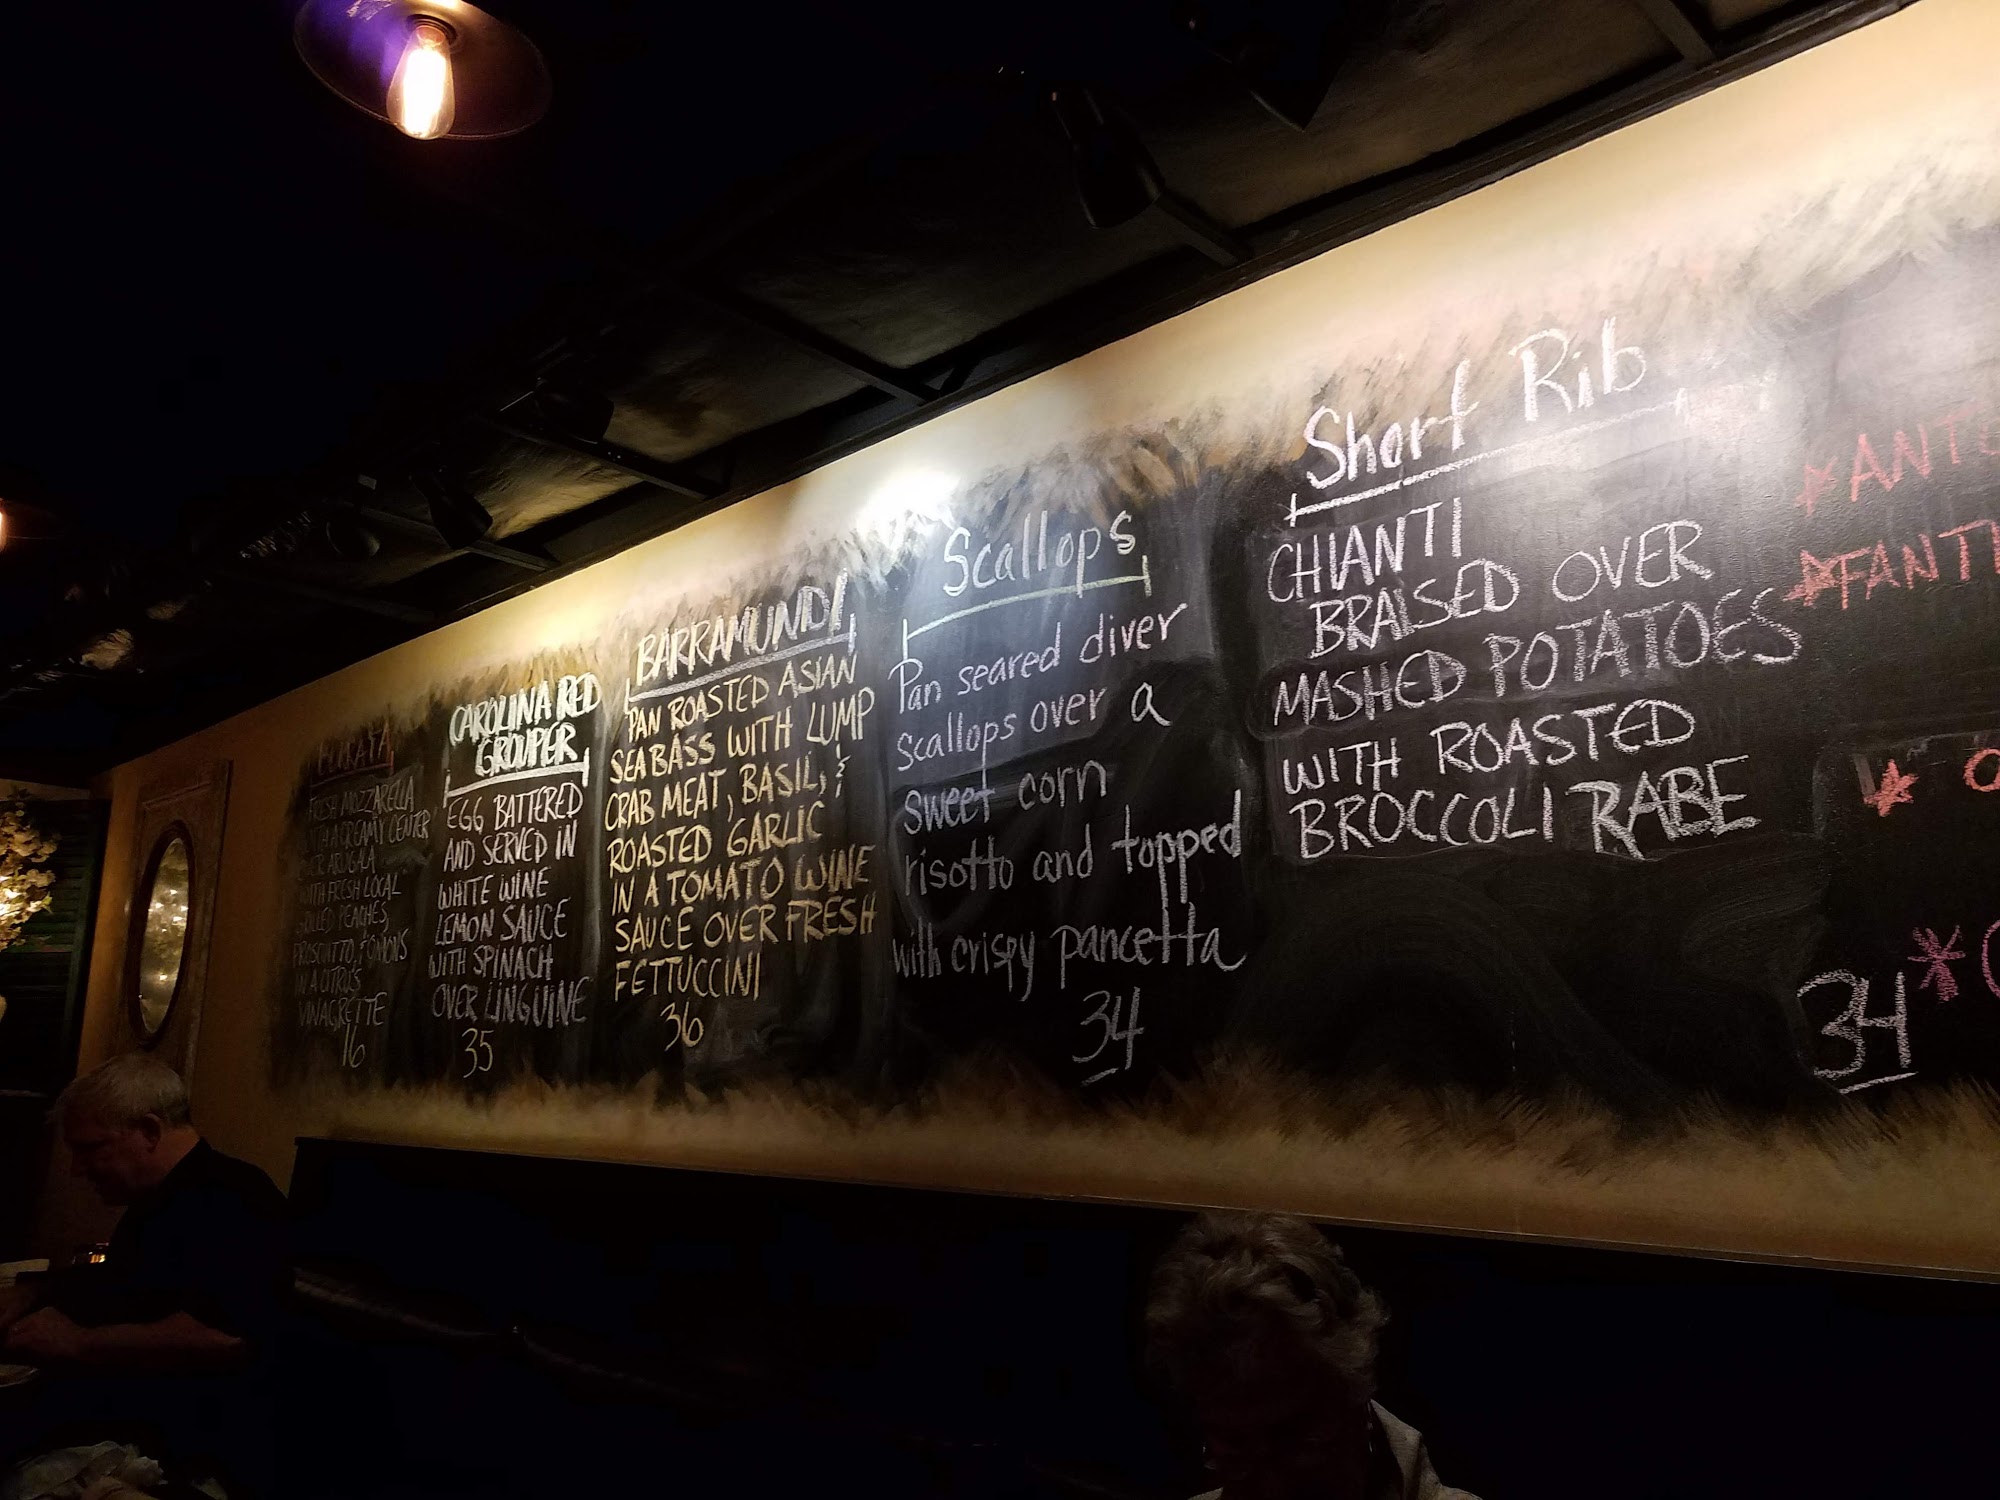 BURATA
FRESH MOZZARELLA
WITH A CREAMY CENTER
OVER ARUGALA
WITH FRESH LOCAL
GRILLED PEACHES,
PROSCIUTTO,
IN A CITRUS
VINAGRETTE
16
CAROLINA RED
GROUPER
EGG BATTERED
AND SERVED IN
WHITE WINE
LEMON SAUCE
WITH SPINACH
OVER LINGUINE
35
BARRAMUNDI
PAN ROASTED ASIAN
SEABASS WITH LUMP
CRAB MEAT, BASIL, &
ROASTED GARLIC
IN A TOMATO WINE
SAUCE OVER FRESH
FETTUCCINI
36
Scallops
Pan seared diver
scallops over a
sweet corn
risotto and topped
with crispy pancetta
34
Short Rib
CHIANTI
BRAISED OVER
MASHED POTATOES
WITH ROASTED
BROCCOLI RABE
34